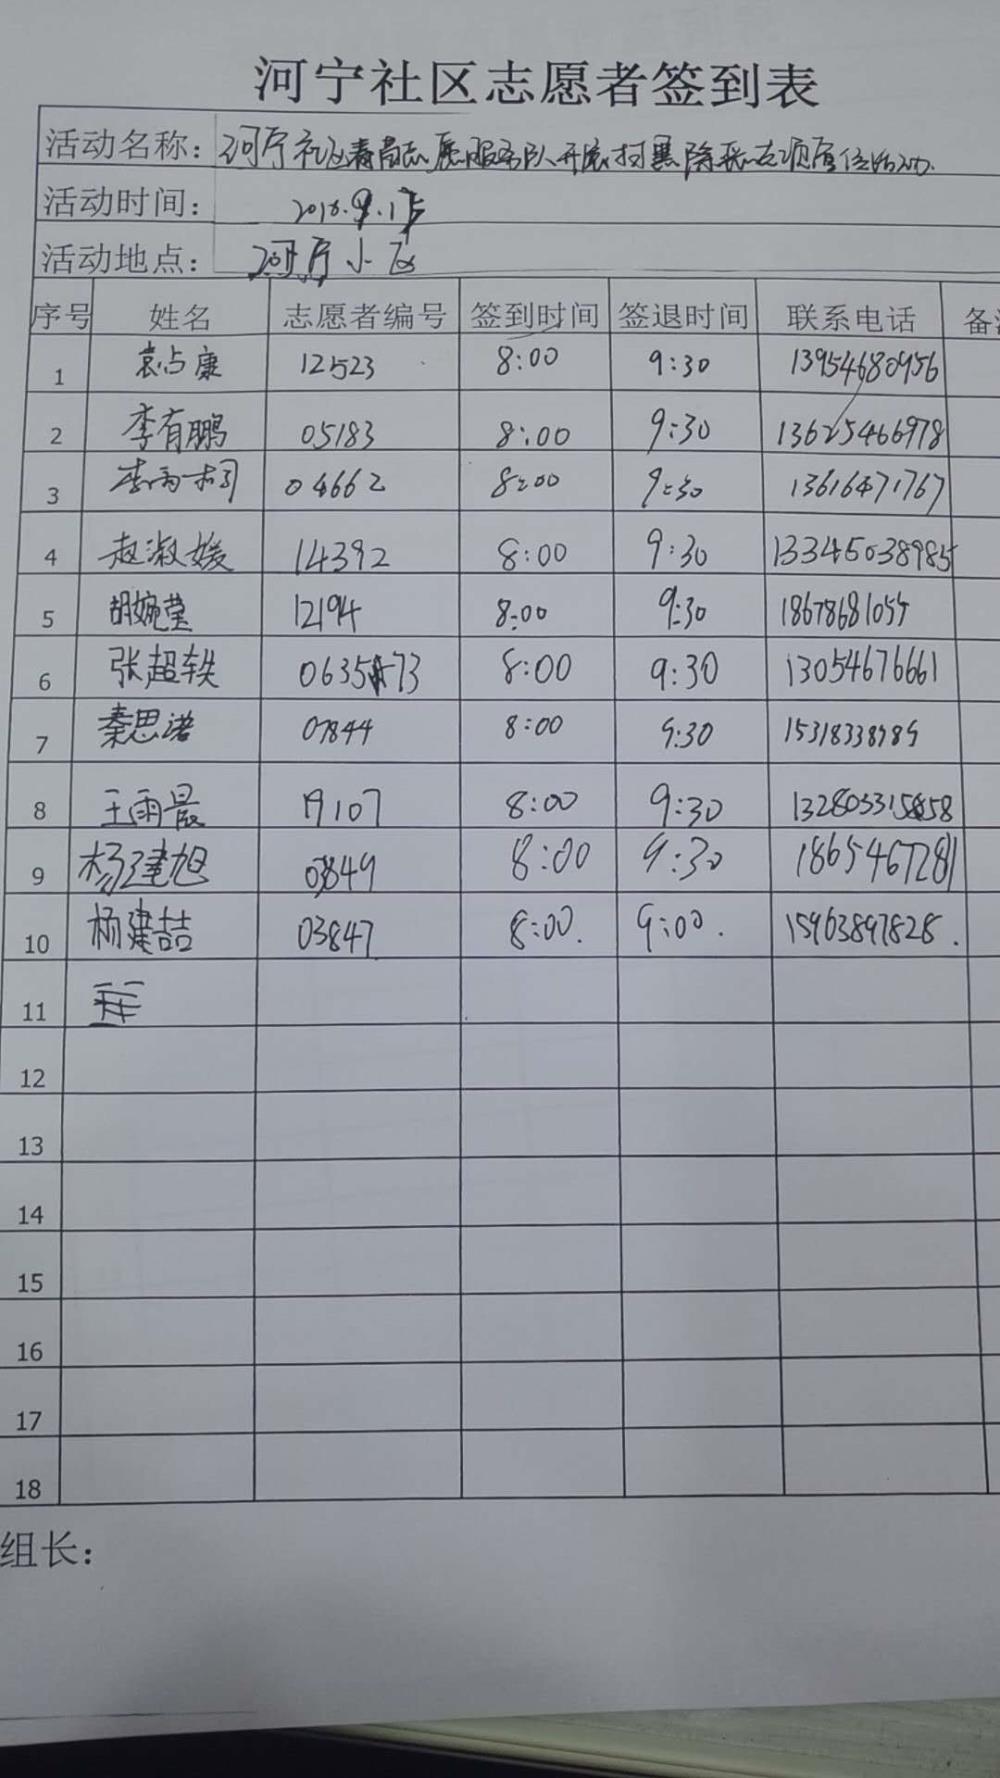 河宁社区志愿者签到表
活动名称: 河宁社区青鸟志愿服务队开展扫黑除恶专项宣传活动.
活动时间: 2018.9.15
活动地点: 河宁小区
序号 姓名 志愿者编号 签到时间 签退时间 联系电话
1 袁占康 12523 8:00 9:30 13954680956
2 李有鹏 05183 8:00 9:30 13625466978
3 李雨桐 04662 8:00 9:30 13616471767
4 赵淑媛 14392 8:00 9:30 13345038985
5 胡婉莹 12194 8:00 9:30 18678681055
6 张超轶 0635173 8:00 9:30 13054676661
7 秦思诺 07844 8:00 9:30 15318338989
8 王雨晨 19107 8:00 9:30
9 杨建旭 03849 8:00 9:30 1865467281
10 杨建喆 03847 8:00. 9:00. 15963897828.
11
12
13
14
15
16
17
18
组长: